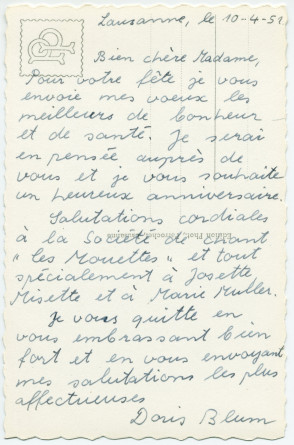 Lausanne, le 10-4-51
Bien chère Madame,
Pour votre fête je vous
envoie mes voeux les
meilleurs de bonheur
et de santé. Je serai
en pensée auprès de
vous et je vous souhaite
un heureux anniversaire.
Salutations cordiales
à la Société de chant
" les Mouettes " et tout
spécialement à Josette
Misette et à Marie Muller.
Je vous quitte en
vous embrassant bien
fort et en vous envoyant
mes salutations les plus
affectueuses
Doris Blum